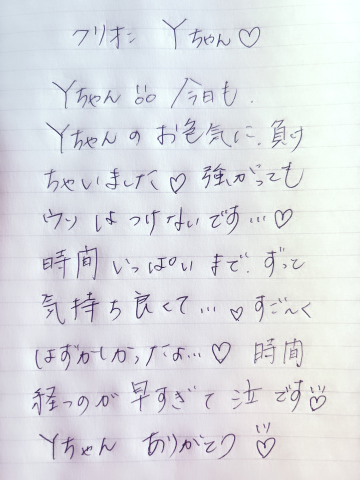 クリオネ Yちゃん♡
Yちゃん 今日も.
Yちゃんのお色気に.負け
ちゃいました♡ 強がっても
ウソはつけないです…♡
時間いっぱいまで.ずって
気持ち良くて…♡すご〜く
はずかしかったよ…♡ 時間
経つのが早すぎて泣です
Yちゃん ありがとう